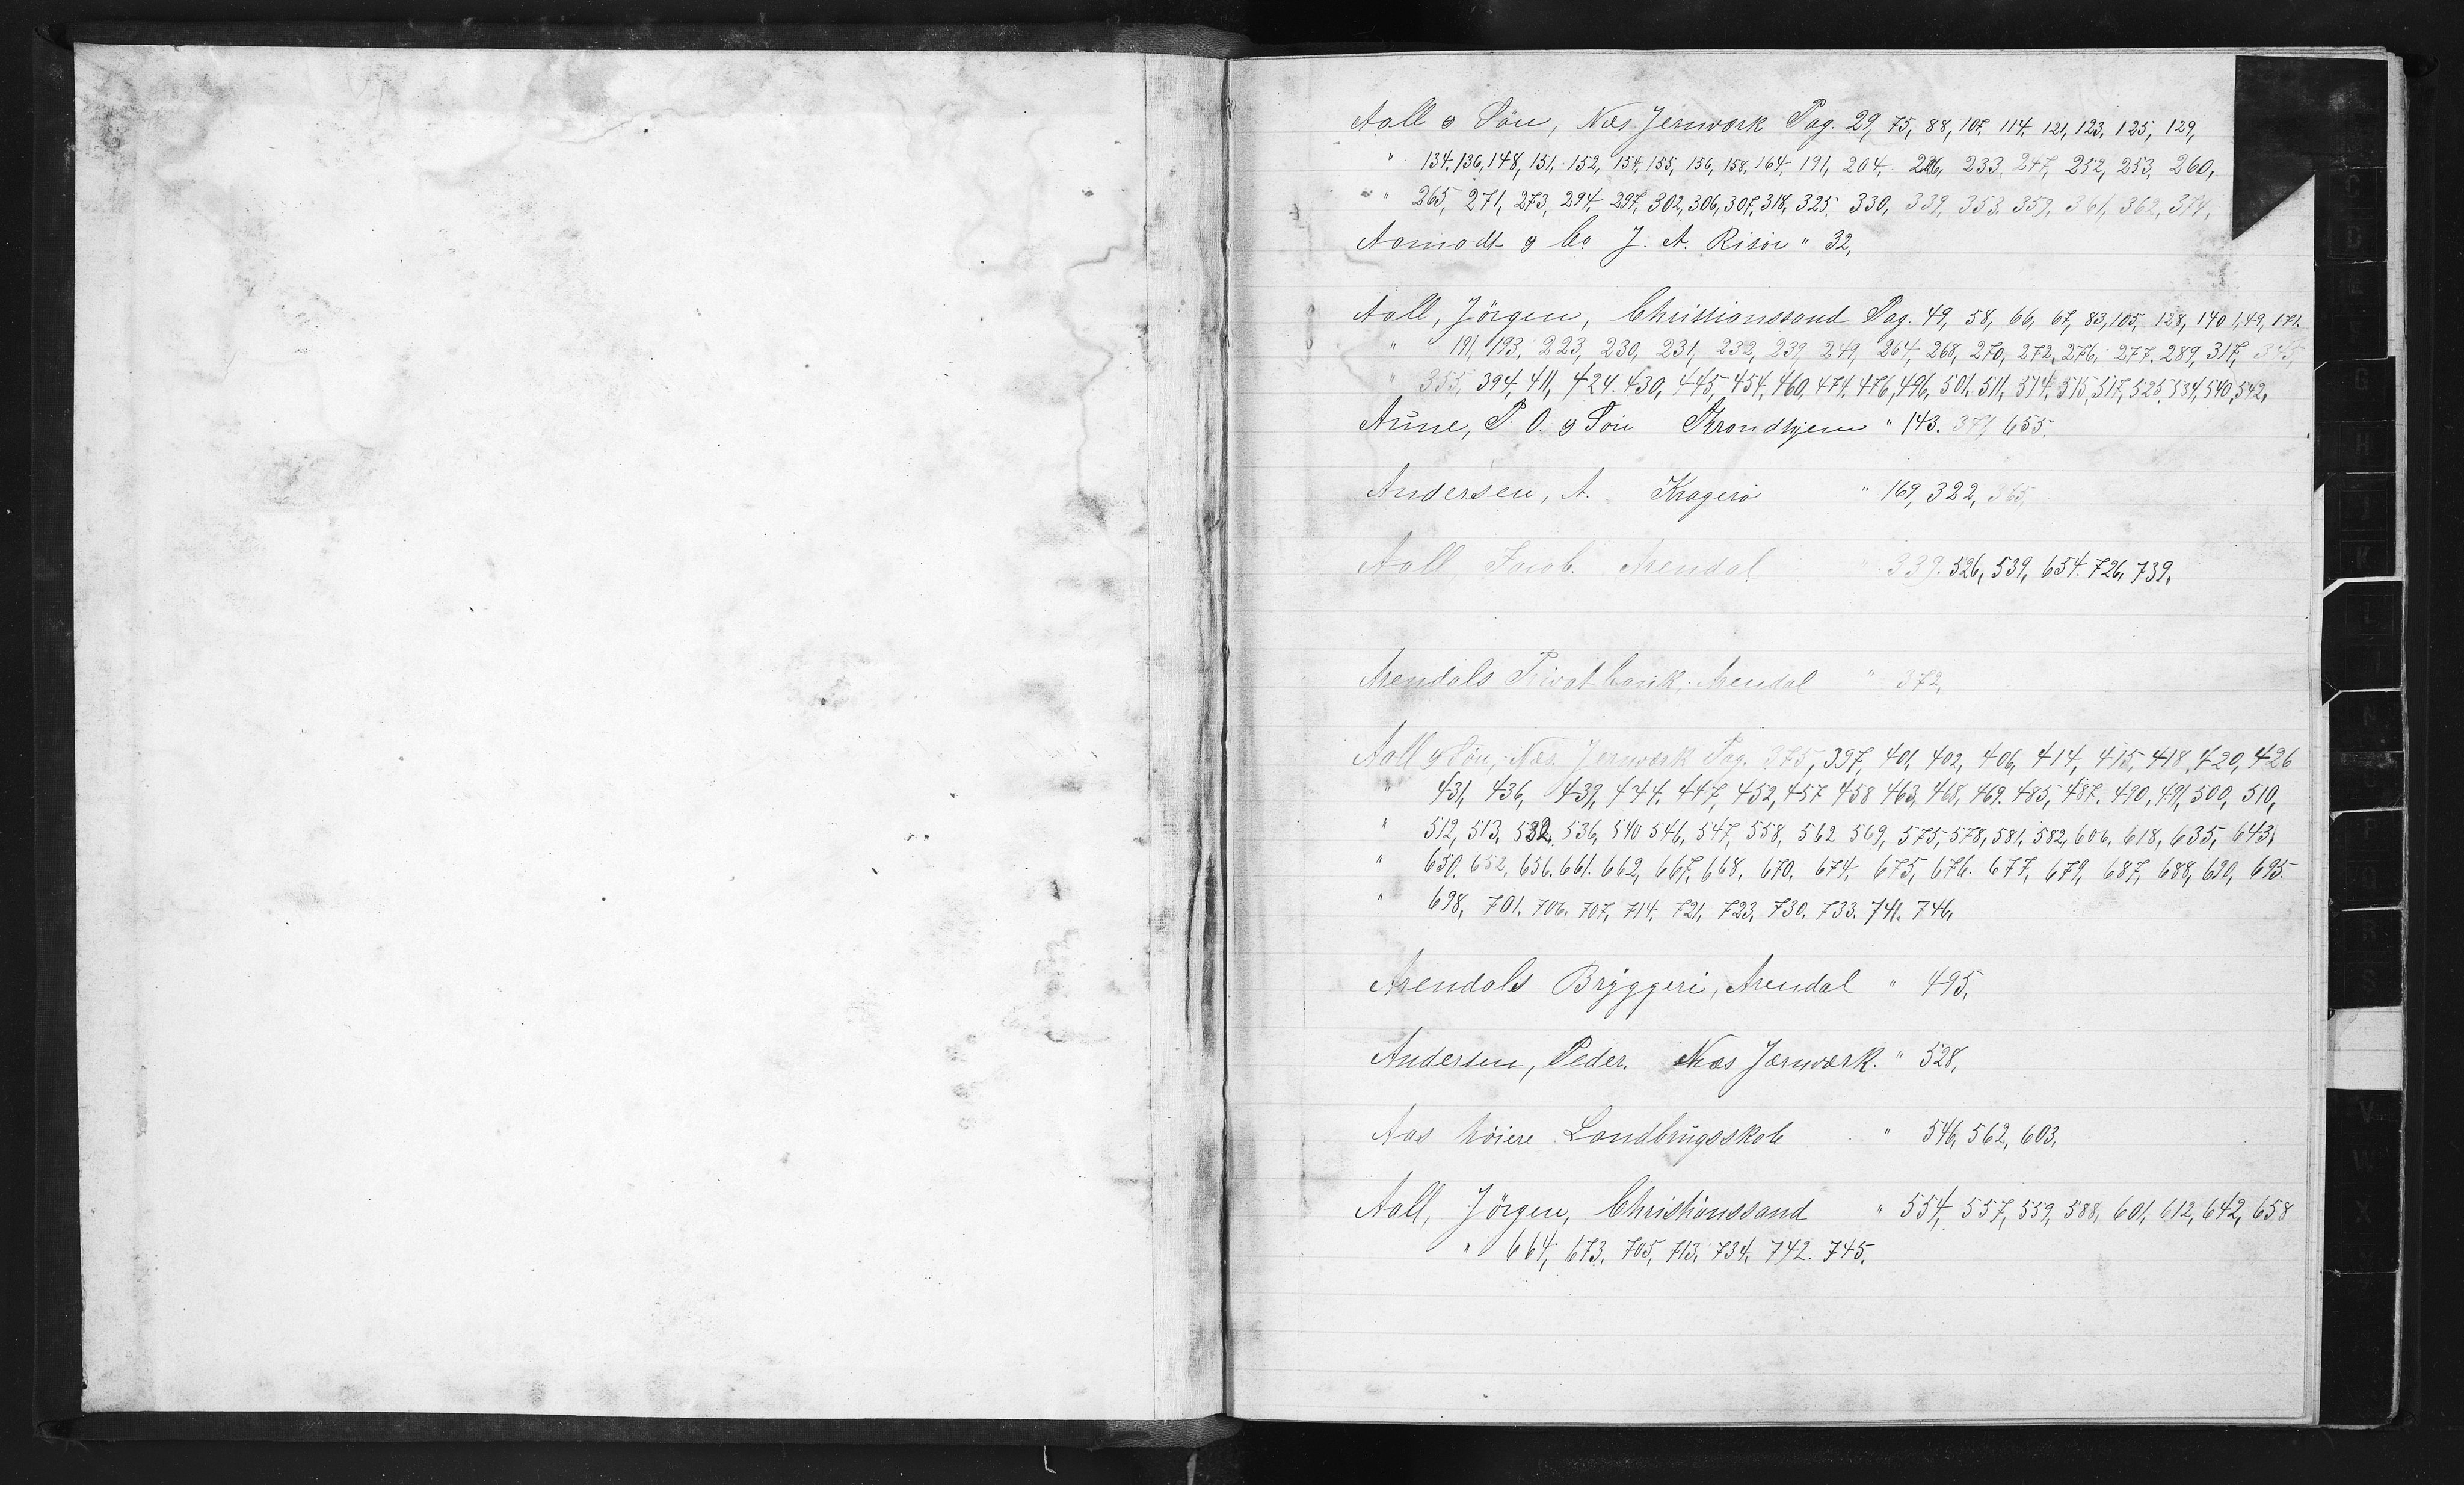 Aall & Sön, Næs Jernværk Pag. 29, 75, 88, 107, 114, 121, 123, 125, 129,
" 134, 136, 148, 151, 152, 154, 155, 156, 158, 164, 191, 204, 226, 233, 247, 252, 253, 260,
" 265, 271, 273, 294, 297, 302, 306, 307, 318, 325, 330, 339, 353, 359, 361, 362, 374,
Aamodt & Co J. A. Risör " 32,
Aall, Jörgen, Christianssand Pag. 49, 58, 66, 67, 83, 105, 128, 140, 149, 171.
" 191, 193, 223, 230, 231, 232, 239, 249, 264, 268, 270, 272, 276, 277, 289, 317, 345,
" 355, 394, 411, 424, 430, 445, 454, 460, 474, 476, 496, 501, 511, 514, 515, 517, 525, 534, 540, 542,
Aune, P. O. & Sön Trondhjem " 143. 371, 655.
Andersen, A. Kragerö " 169, 322, 365,
Aall Jacob. Arendal " 339. 526, 539, 654. 726, 739,
Arendals Privatbank, Arendal " 372,
Aall & Sön, Næs Jernværk Pag. 375, 397, 401, 402, 406, 414, 415, 418, 420, 426
" 431, 436, 439, 444, 447, 452, 457 458 463, 468, 469. 485, 487, 490, 491, 500, 510,
" 512, 513, 532, 536, 540 546, 547, 558, 562 569, 575, 578, 581, 582, 606, 618, 635, 643,
" 650, 652, 656. 661. 662, 667, 668, 670, 674, 675, 676. 677, 679, 687, 688, 690, 695.
" 698, 701, 706, 707, 714, 721, 723, 730, 733. 741. 746,
Arendals Bryggeri, Arendal " 495,
Andersen, Peder. Næs Jernværk. " 528,
Aas höiere Landbrugsskole " 546, 562, 603,
Aall, Jörgen, Christianssand " 554, 557, 559, 588, 601, 612, 642, 658
" 664, 673, 705, 713, 734, 742. 745.
C
D
E
F
G
H
J
K
N
Q
R
S
V
W
X